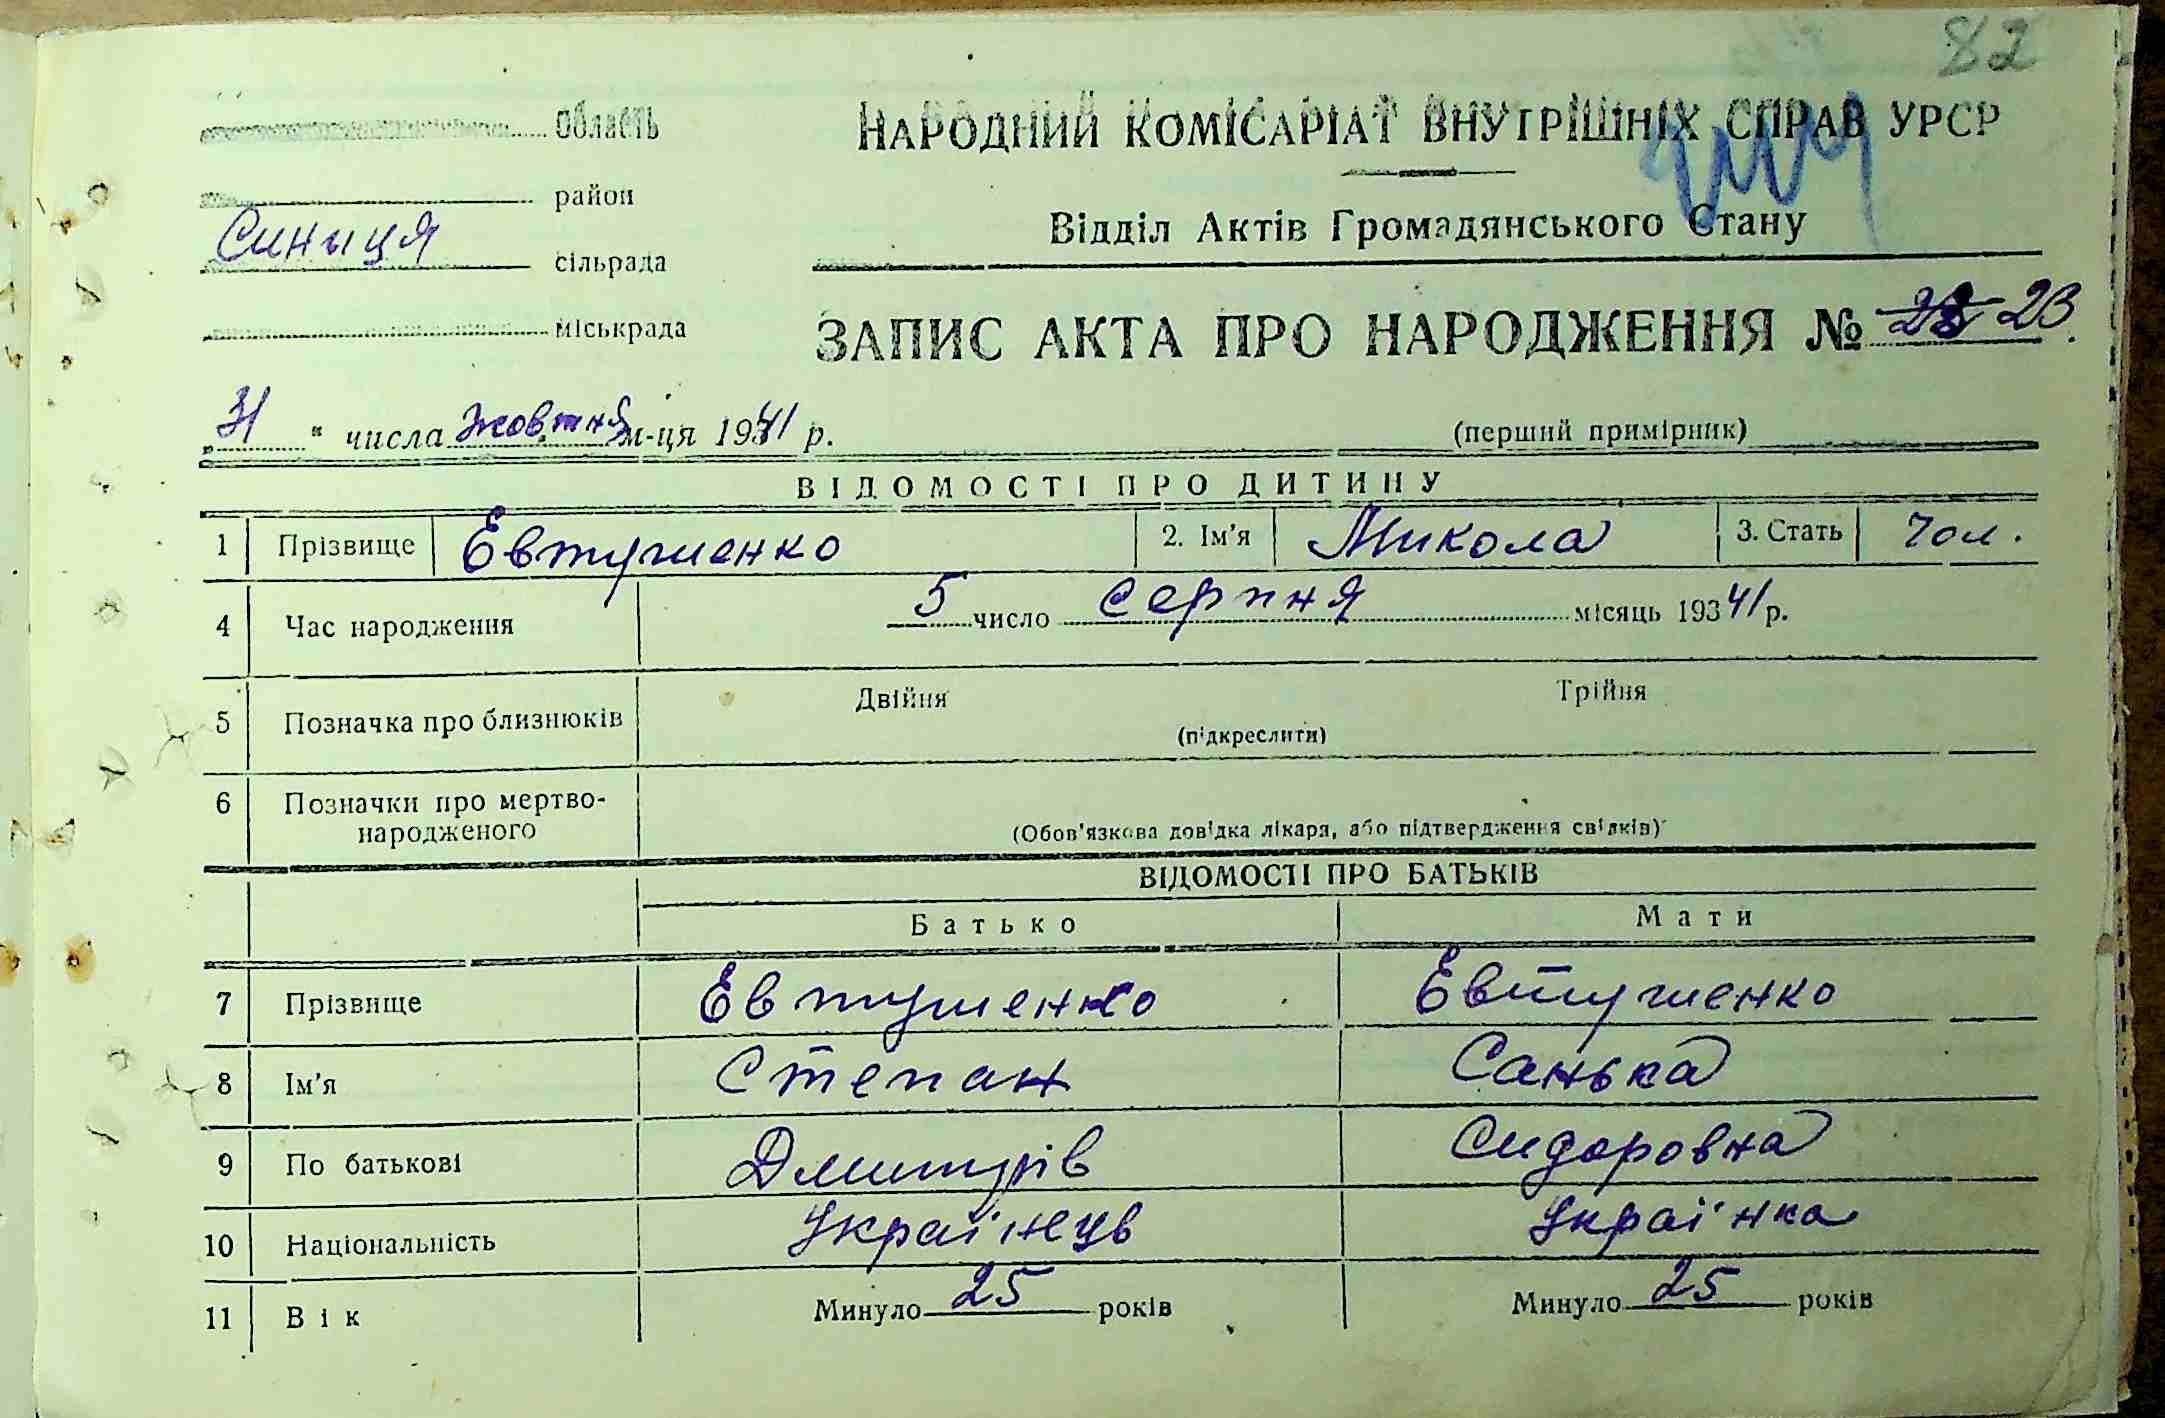 82
область НАРОДНИЙ КОМІСАРІАТ ВНУТРІШНІХ СПРАВ УРСР
район
Відділ Актів Громадянського Стану
Синиця сільрада
міськрада
ЗАПИС АКТА ПРО НАРОДЖЕННЯ № 23
„31“ числа жовтня м-ця 1941 р. (перший примірник)
ВІДОМОСТІ ПРО ДИТИНУ
1 Прізвище Евтушенко 2. Ім'я Микола 3. Стать чол.
4 Час народження 5 число серпня місяць 19341 р.
5 Позначка про близнюків Двійня Трійня
(підкреслити)
6 Позначки про мертво-
народженого (Обов'язкова довідка лікаря, або підтвердження свідків)
ВІДОМОСТІ ПРО БАТЬКІВ
Батько Мати
7 Прізвище Евтушенко Евтушенко
8 Ім'я Степан Санька
9 По батькові Дмитрів Сидоровна
10 Національність Українець Українка
11 Вік Минуло 25 років Минуло 25 років